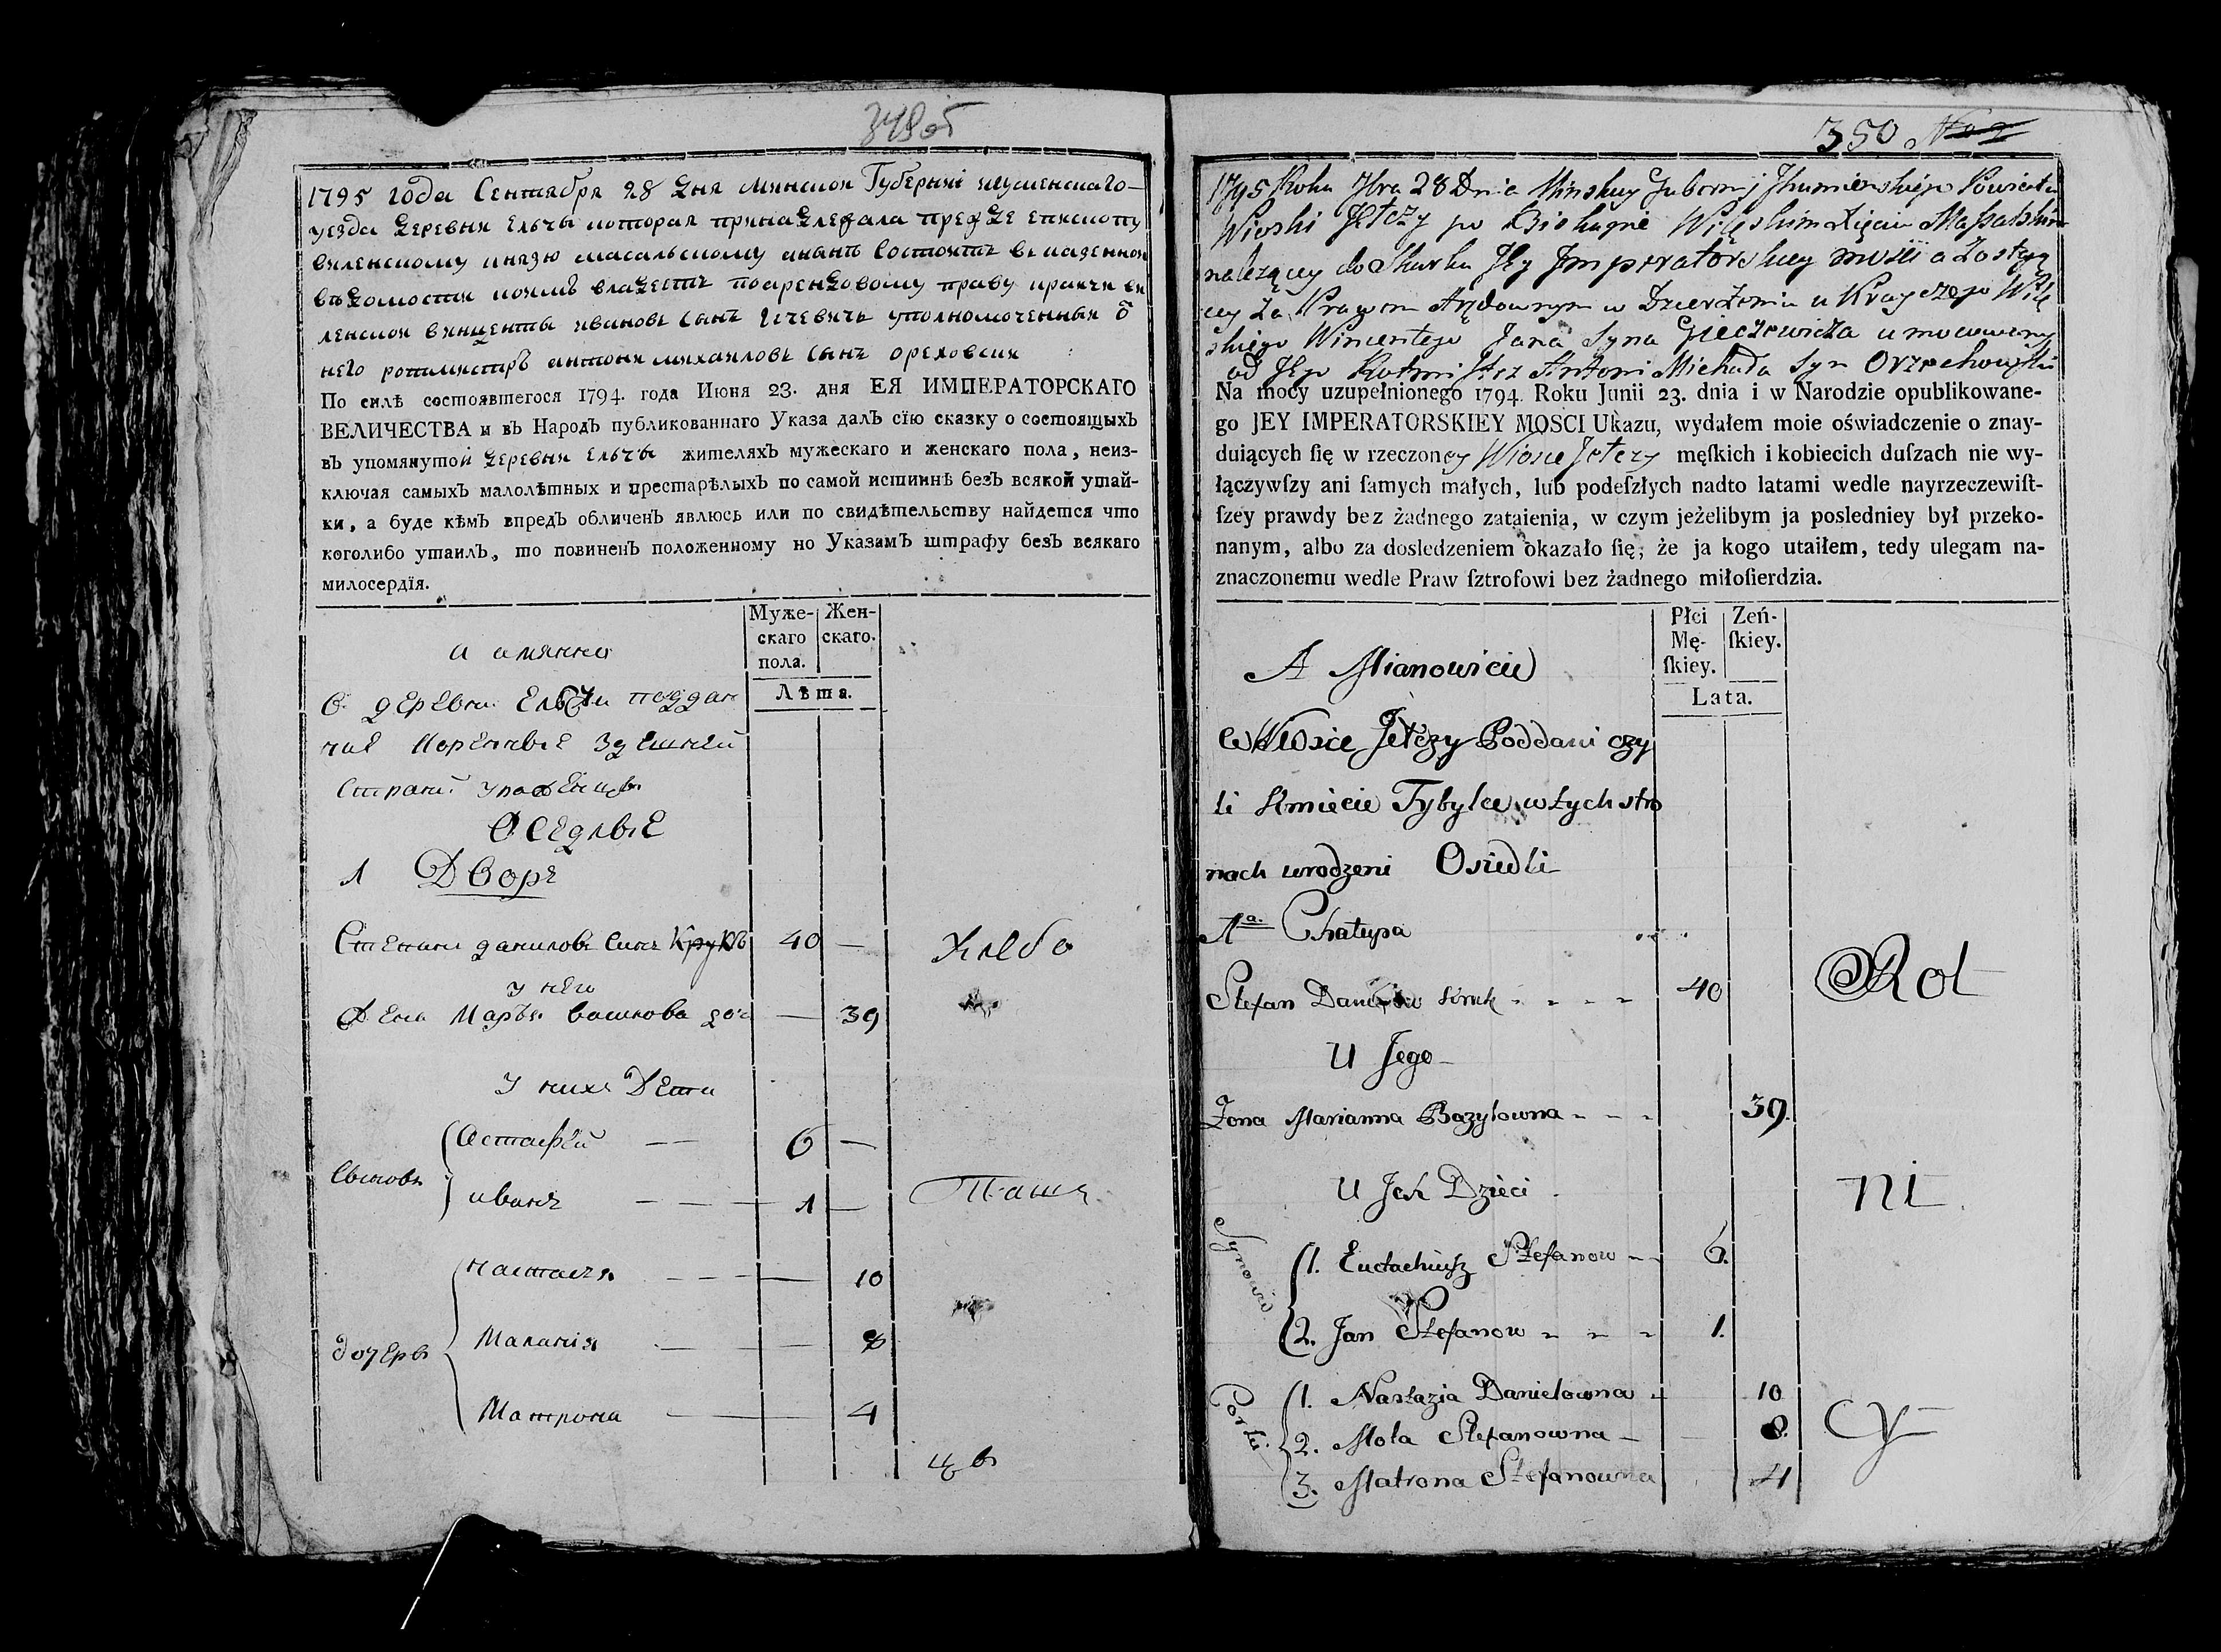 349об
1795 года Сентября 28 дня минской Губернии игуменскаго
уезда деревни Ельчы которая принадлежала прежде епископу
виленскому князю масальскому а нынѣ состоитъ въ казенном
вѣдомости коимъ владеетъ поарендовому праву крайчи ви
ленской винценты ивановъ сынъ Гечевичъ уполномоченный о͞
него ротмистръ антони михайловъ сынъ ореховски
По силѣ состоявшегося 1794. года Июня 23. дня ЕЯ ИМПЕРАТОРСКАГО
ВЕЛИЧЕСТВА и въ Народъ публикованнаго Указа далъ сїю сказку о состоящыхъ
въ упомянутой деревни Ельчы жителяхъ мужескаго и женскаго пола, неиз-
ключая самыхъ малолѣтных и престарѣлыхъ по самой истиннѣ безъ всякой утай-
ки, а буде кѣмъ впредъ обличенъ явлюсь или по свидѣтельству найдется что
коголибо утаилъ, то повиненъ положенному но Указамъ штрафу безъ всякаго
милосердїя.
Муже-
скаго
пола.
Жен-
скаго.
Лѣта.
а имянно
В деревни Ельчи поддан
ние коренные здешней
страни урожденцы
Оседлые
1 Дворъ
Степанъ даниловъ синъ Крукъ 40 —
у него
Жена Марья васкова доч — 39
У нихъ Дети
сыновы
Астафей — 6 —
иванъ — 1 —
дочеры
настася — 10
Маланія — 8
Матрона — 4
Хлебо
Паш
цы
350 No 2
1795 Roku 7bra 28 Dnia Minskiey Gubernij Jhumienskiego Powiatu
Wioski Jelczy po Biskupie Wileskim Xięciu Massalskim
należącey do Skarbu Jey Imperatorskiey mości a Zostaią
cey za Prawem Arędownym w Dzierżeniu u Krayczego Wile
skiego Wincentego Jana Syna Gieczewicza umocowany
od Jego Rotmistrz Antoni Michała Syn Orzechowski
Na mocy uzupełnionego 1794. Roku Junii 23. dnia i w Narodzie opublikowane-
go JEY IMPERATORSKIEY MOSCI Ukazu, wydałem moie oświadczenie o znay-
duiących ſię w rzeczoney Wiosce Jelczy męſkich i kobiecich duſzach nie wy-
łączywſzy ani ſamych małych, lub podeſzłych nadto latami wedle nayrzeczewiſt-
ſzey prawdy bez żadnego zataienia, w czym jeżelibym ja posledniey był przeko-
nanym, albo za dosledzeniem okazało ſię, że ja kogo utaiłem, tedy ulegam na-
znaczonemu wedle Praw ſztrofowi bez żadnego miłoſierdzia.
Płci
Mę-
ſkiey.
Zeń-
ſkiey.
Lata.
A Mianowicie
w Wiosce Jelczy Poddani czy
li Kmiecie Tybylce w tych stro
nach urodzeni Osiedli
1a. Chałupa
Stefan Daniełow Kruk 40
U Jego
Żona Marianna Bazylowna 39.
U Jch Dzieci
Synowie
1. Eustachiusz Stefanow 6.
2. Jan Stefanow 1.
Corki
1. Nastazia Danielowna 10
2. Mola Stefanowna 8.
3. Matrona Stefanowna 4
Rol
ni
cy